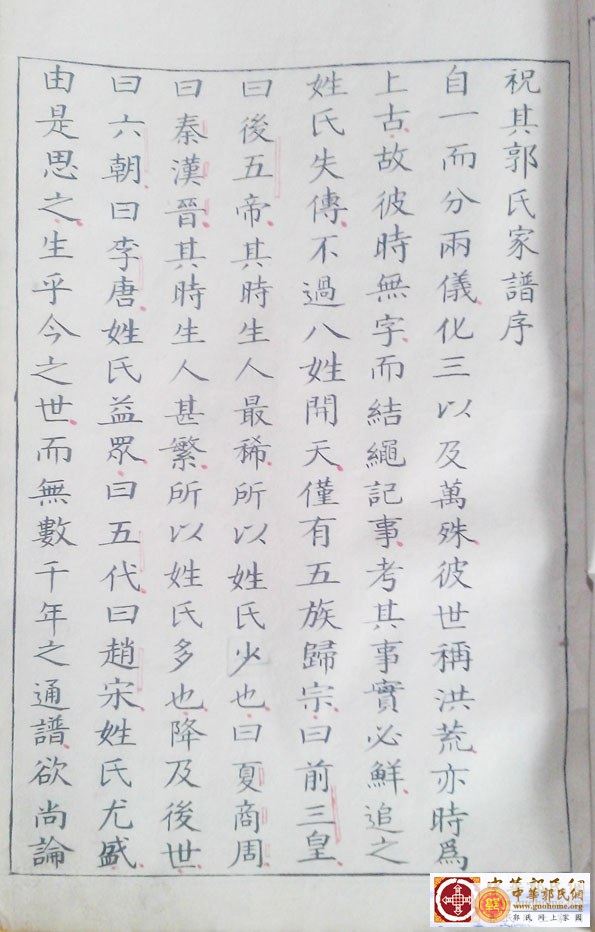 祝其郭氏家譜序
自一而分兩儀化三以及萬殊彼世稱洪荒亦時爲
上古故彼時無字而結繩記事考其事實必鮮追之
姓氏失傳不過八姓開天僅有五族歸宗曰前三皇
曰後五帝其時生人最稀所以姓氏少也曰夏商周
曰秦漢晉其時生人甚繁所以姓氏多也降及後世
曰六朝曰李唐姓氏益眾曰五代曰趙宋姓氏尤盛
由是思之生乎今之世而無數千年之通譜欲尚論
中華郭氏網
www.guohome.org
郭氏網上家園